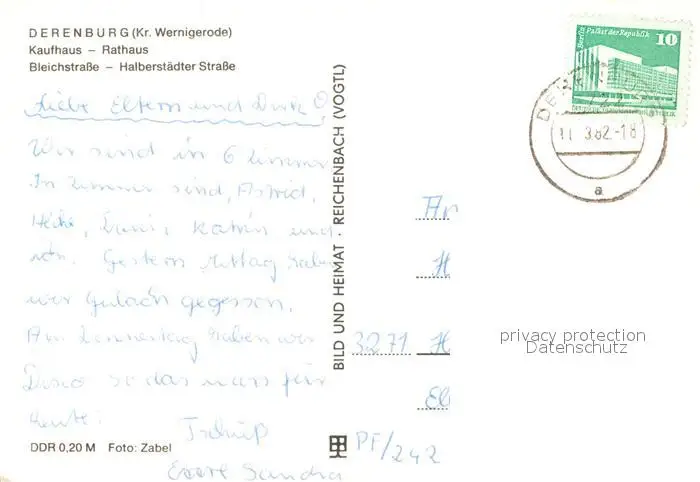 DERENBURG (Kr. Wernigerode)
Kaufhaus – Rathaus
Bleichstraße – Halberstädter Straße
Liebe Eltern und Dirk
Wir sind in 6 Zimmer
In Zimmer sind, Astrid,
Heike, Katrin und
ich. Gestern Mittag haben
wir Gulach gegessen.
Am Donnerstag haben wir
Disco so das wars für
heute!
Tschüß
Eure Sandra
DDR 0,20 M Foto: Zabel
BILD UND HEIMAT · REICHENBACH (VOGTL)
Berlin Palast der Republik
10
11.3.82-18
a
An
H
3271 H
El
PF/242
privacy protection
Datenschutz